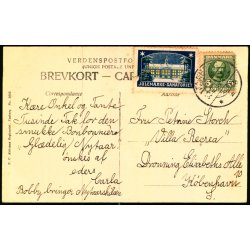 VERDENSPOSTFO
(UNION POSTALE UNIVER
BREVKORT - CAR
JULEMÆRKE SANATORIET
Correspondance
Kære Onkel og Tante
Tusinde Tak for den
smukke Bonbonniere
Glædelig Nytaar!
ønskes af
eders
Carla
Bobby bringer Nytaarshilsen
Fru Storch
"Villa Recrea"
Dronning Elisabeths Allé 10
København